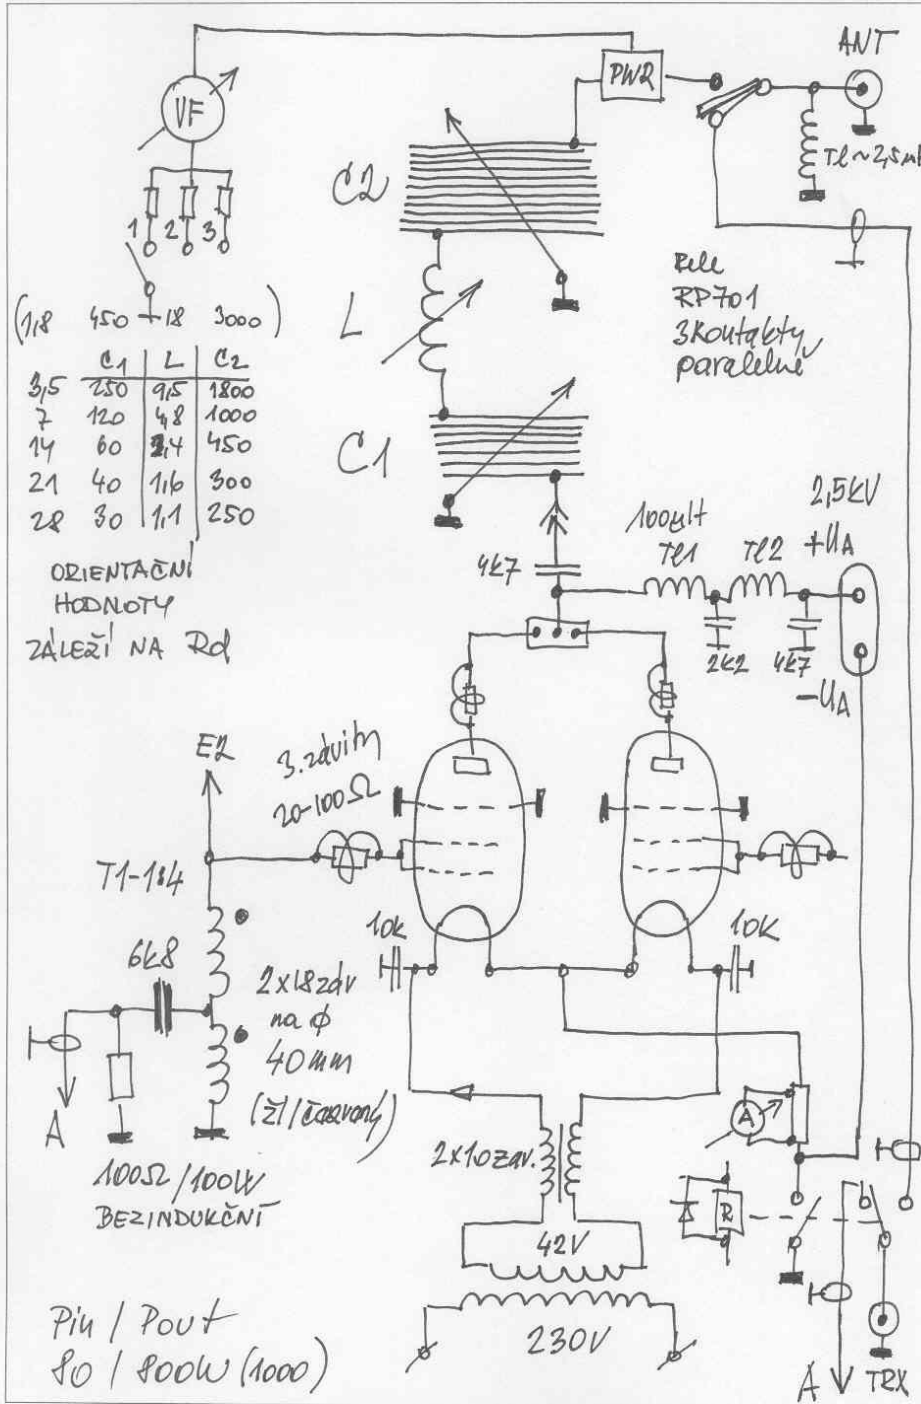 ANT
PWR
VF
Tl~2,5mH
C2
1 2 3
Rele
RP701
3Kontakty
paralelně
L
(1,8 450 18 3000)
C1 L C2
3,5 250 9,5 1800
7 120 4,8 1000
14 60 2,4 450
21 40 1,6 300
28 30 1,1 250
C1
ORIENTAČNÍ
HODNOTY
ZÁLEŽÍ NA Rd
2,5kV
100µH
Tl1
Tl2
+UA
4k7
2k2
4k7
-UA
E2
3.závity
20-100Ω
T1-1:4
10k
10K
6k8
2x18záv
na ϕ
40mm
(žl/červený)
A
A
2x10záv.
100Ω/100W
BEZINDUKČNÍ
R
42V
230V
Pin / Pout
80 / 800W (1000)
A
TRX